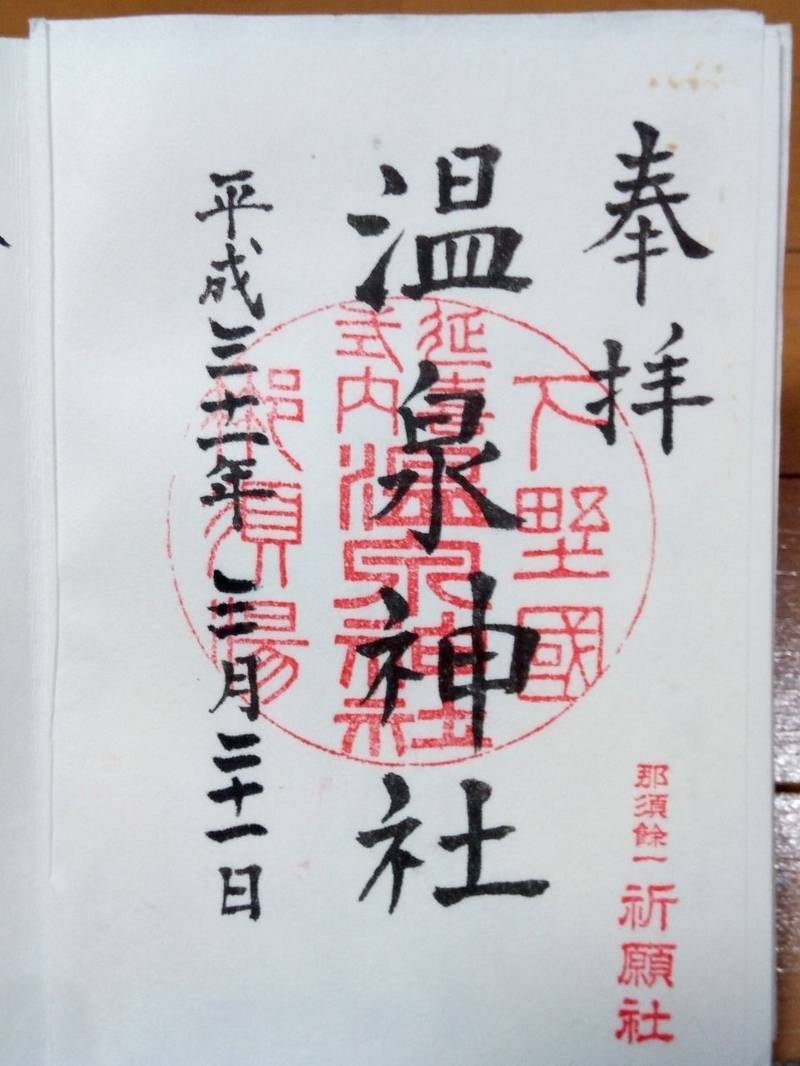 奉拝
温泉神社
平成三十一年三月二十一日
下野國
延喜
式内
温泉神社
那須湯
那須餘一
祈願社